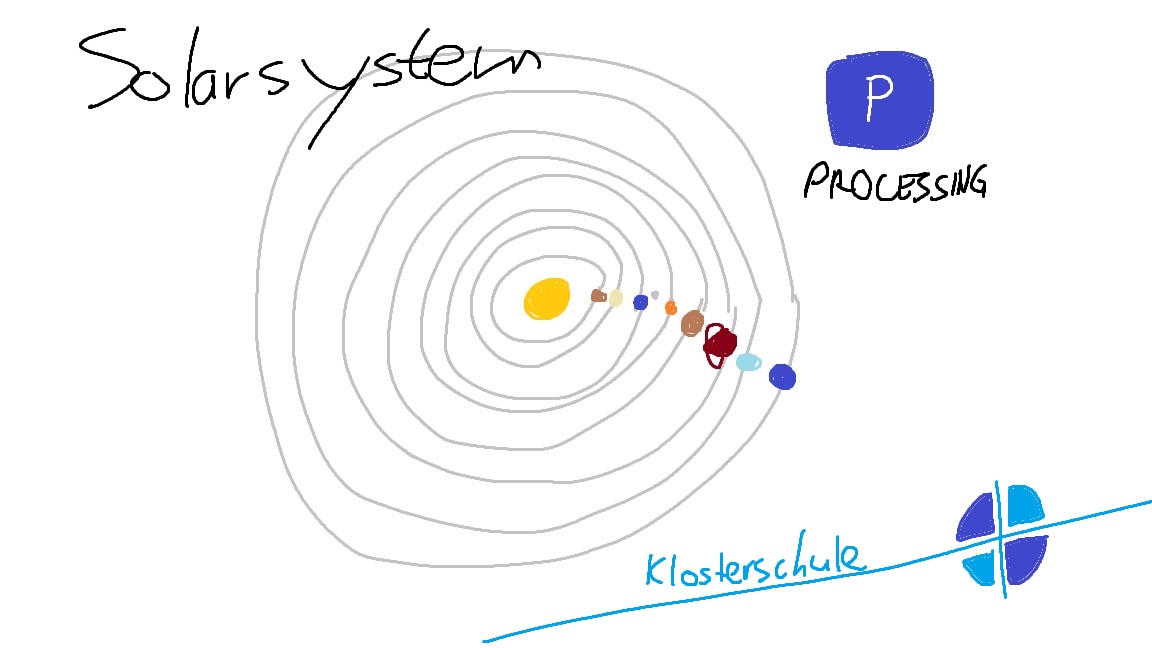 Solarsystem
P
PROCESSING
Klosterschule